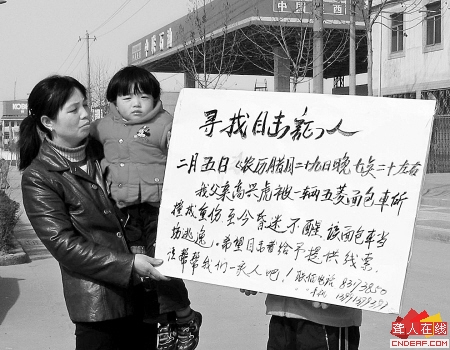 中国石油
寻找目击证人
二月五日(农历腊月二十九日晚七点二十左右
我父亲高兴虎被一辆五菱面包车所
撞成重伤至今昏迷不醒该面包车当
场逃逸,希望目击者给予提供线索.
请帮帮我们一家人吧!联系电话 8393850
聋人在线
CNDEAF.COM